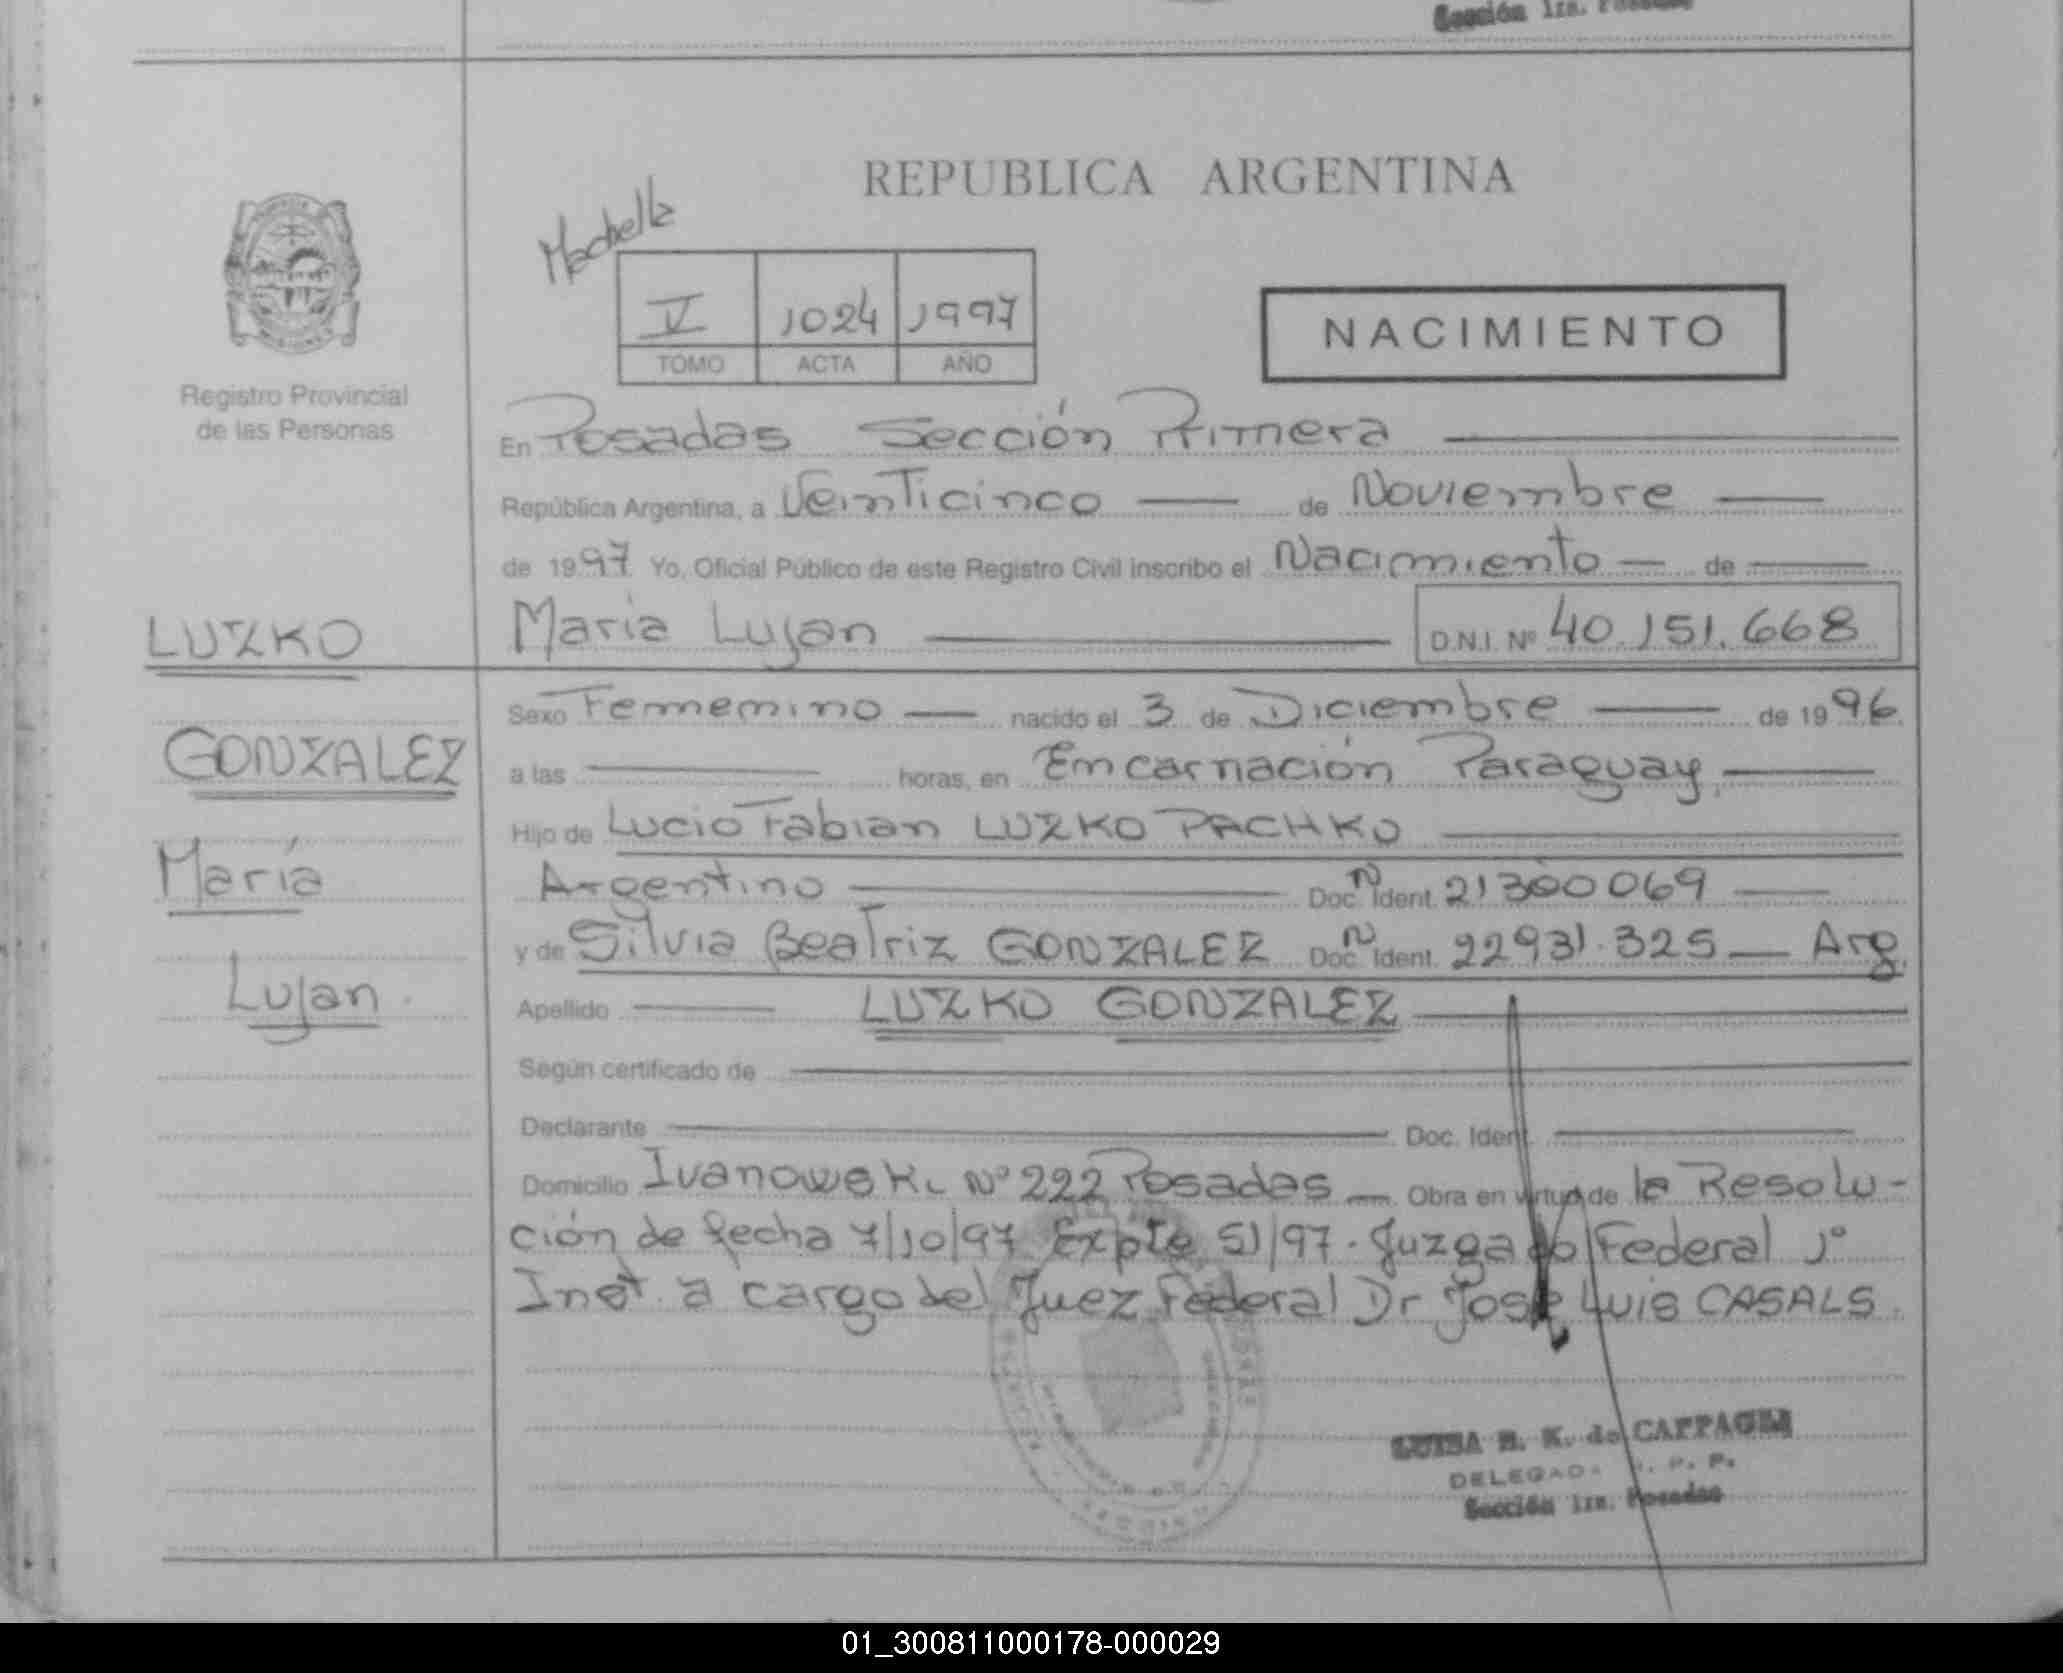 Sección 1ra. Posadas
REPUBLICA ARGENTINA
Registro Provincial
de las Personas
V 1024 1997
TOMO ACTA AÑO
NACIMIENTO
En Posadas Sección Primera
República Argentina, a Veinticinco de Noviembre
de 1997 Yo, Oficial Público de este Registro Civil inscribo el Nacimiento de
María Lujan D.N.I. Nº 40.151.668
LUZKO
GONZALEZ
María
Lujan.
Sexo Femenino nacido el 3 de Diciembre de 1996.
a las horas, en Encarnación Paraguay,
Hijo de Lucio Fabian LUZKO PACHKO
Argentino Doc. N Ident. 21300069
y de Silvia Beatriz GONZALEZ Doc. N Ident. 22931.325 Arg.
Apellido LUZKO GONZALEZ
Según certificado de
Declarante Doc. Ident.
Domicilio Ivanowski Nº 222 Posadas Obra en virtud de la Resolu-
ción de fecha 7/10/97 Expte 51/97. Juzgado Federal 1º
Inst. a cargo del Juez Federal Dr José Luis CASALS.
LUISA H. K. de
DELEGADA R. P. P.
Sección 1ra. Posadas
01_300811000178-000029